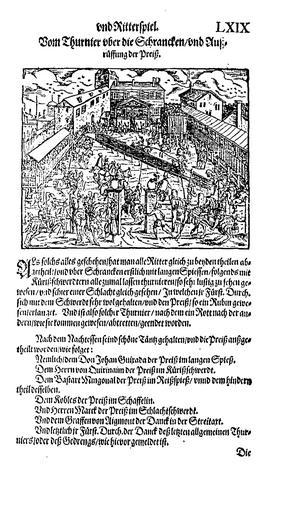 vnd Ritterspiel. LXIX
Vom Thurnier vber die Schrancken/vnd Auß-
rüffung der Preiß.
Als solchs alles geschehen/hat man alle Ritter gleich zu beyden theilen ab-
getheilt/vnd vber Schrancken erstlich mit langen Spiessen/folgends mit
Kürißschwerdtern allezumal lassen thurnieren/so sehr lustig zu sehen ge-
wesen/vnd schier einer Schlacht gleich gesehen/ In welchen jr Fürst. Durch.
sich mit dem Schwerd sehr wol gehalten/vnd den Preiß/so ein Rubin gewe-
sen/erlanget. Vnd ist also solcher Thurnier/nach dem ein Rott nach der an-
dern/wie sie kommen gewesen/abtretten/geendet worden.
Nach dem Nachtessen seind schöne Täntz gehalten/vnd die Preiß außge-
theilt worden/wie folget:
Nemlich/dem Don Johan Guivada der Preiß im langen Spieß.
Dem Herrn von Quirinaim der Preiß im Kürißschwerdt.
Dem Bastart Mingoual der Preiß im Reißspieß/vnnd dem hindern
theil desselben.
Dem Nobles der Preiß im Schaffelin.
Vnd Herren Marck der Preiß im Schlachtschwerdt.
Vnd dem Graffen von Aigmont der Danck in der Streitart.
Vnd letztlich jr Fürst. Durch. der Danck deß letzten allgemeinen Thur-
niers/oder deß Gedrengs/wie hievor gemeldet ist.
Die